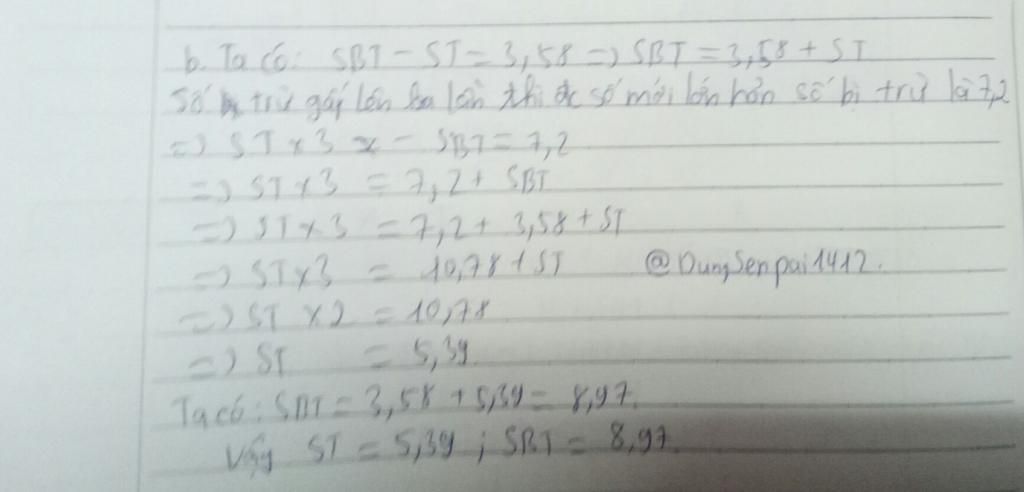 b. Ta có: SBT - ST = 3,58 => SBT = 3,58 + ST
Số trừ gấp lên ba lần thì đc số mới lớn hơn số bị trừ là 7,2
=> ST x 3 - SBT = 7,2
=> ST x 3 = 7,2 + SBT
=> ST x 3 = 7,2 + 3,58 + ST
=> ST x 3 = 10,78 + ST @DungSenpai1412.
=> ST x 2 = 10,78
=> ST = 5,39
Ta có: SBT = 3,58 + 5,39 = 8,97.
Vậy ST = 5,39 ; SBT = 8,97.